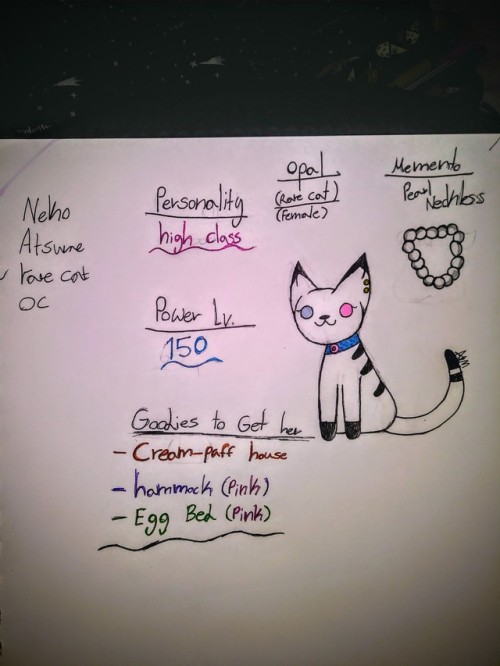 Neko
Atsume
rare cat
OC
Personality
high class
Opal
(Rare cat)
(Female)
Memento
Pearl
Neckless
Power Lv.
150
Goodies to Get her
- Cream-paff house
- hammock (Pink)
- Egg Bed (Pink)